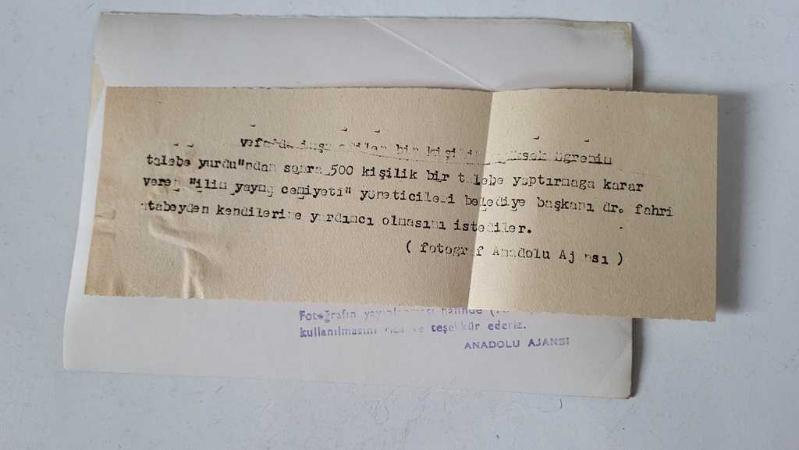 bir kişilik yüksek öğrenim
talebe yurdu"ndan sonra 500 kişilik bir talebe yaptırmaga karar
veren "ilim yayma cemiyeti" yöneticileri belediye başkanı dr. fahri
atabeyden kendilerine yardımcı olmasını istediler.
( fotograf Anadolu Ajansı )
Fotoğrafın yayınlanması halinde
kullanılmasını rica ve teşekkür ederiz.
ANADOLU AJANSI